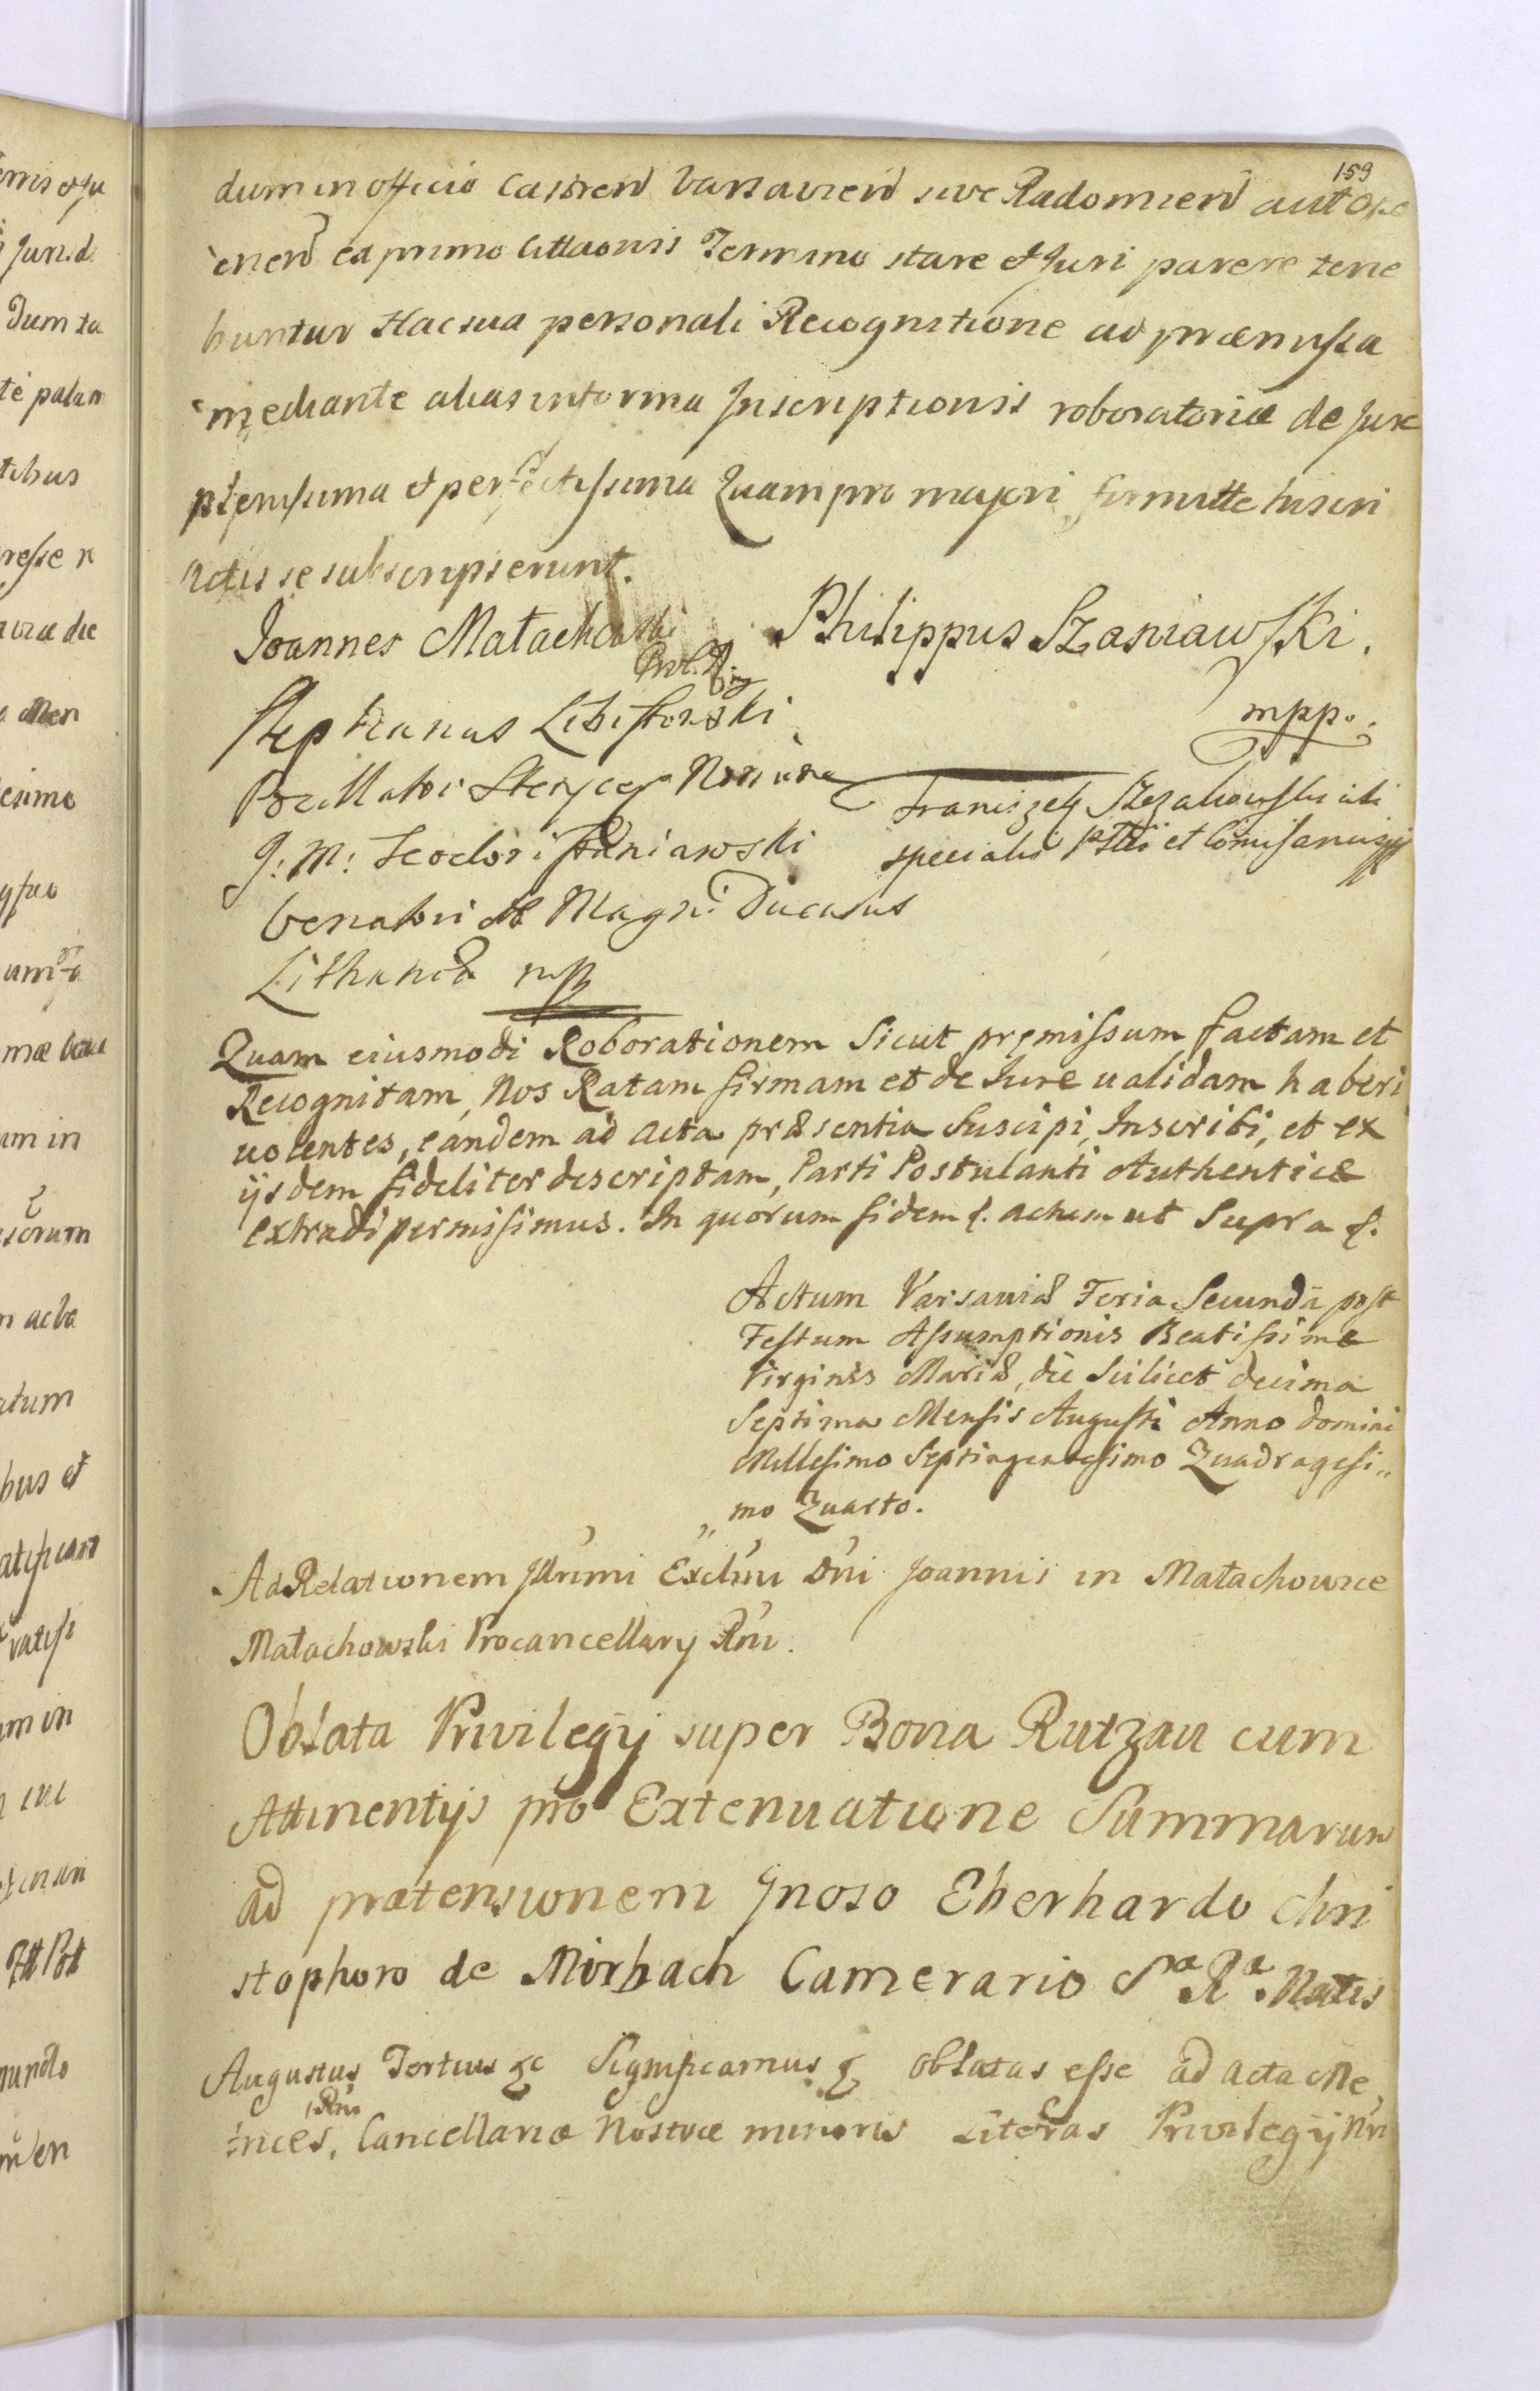 159
dum in officio Castren Varsavien sive Radomien aut Opo
cnen ea primo Cittaonis Termino stare et Juri parere tene
buntur Hac sua personali Recognitione ad præmissa
mediante alias in forma Inscriptionis roboratoriæ de Jure
plenissima et perfectissima Quam pro majori firmitte hisce
Actis se subscripserunt.
Joannes Małachowski
Philippus Szaniawski.
Stephanus Libiszowski
mpp.
G: M: Teodori Szaniawski
Franciszek
specialis et
Venatori Magni Ducatus
Lithaniæ mpp
Quam eiusmodi Roborationem Sicut premissum factam et
Recognitam, Nos Ratam firmam et de Iure ualidam haberi
uolentes, eandem ad Acta præsentia Suscipi, Inscribi, et ex
ijsdem fideliter descriptam, Parti Postulanti Authenticæ
extradi permisimus. In quorum fidem &. Actum ut Supra &.
Actum Varsaviæ Feria Secunda post
Festum Assumptionis Beatissimæ
Virginis Mariæ, die Scilicet decima
Septima Mensis Augusti Anno Domini
Millesimo Septingentesimo Quadragesi„
„mo Quarto.
Ad Relationem Illrmi Exclmi Dni Joannis in Małachowice
Małachowski Procancellary Rni.
Oblata Privilegÿ super Bona Rutzau cum
Attinentÿs pro Extenuatione Summarum
ad prætensionem Gnoso Eberhardo Chri
stophoro de Mirbach Camerario Sa. Ra. Mattis
Augustus Tertius &c Significamus & Oblatas esse ad Acta Me
trices, Rni Cancellariæ Nostræ minoris Literas Privilegÿ Nri